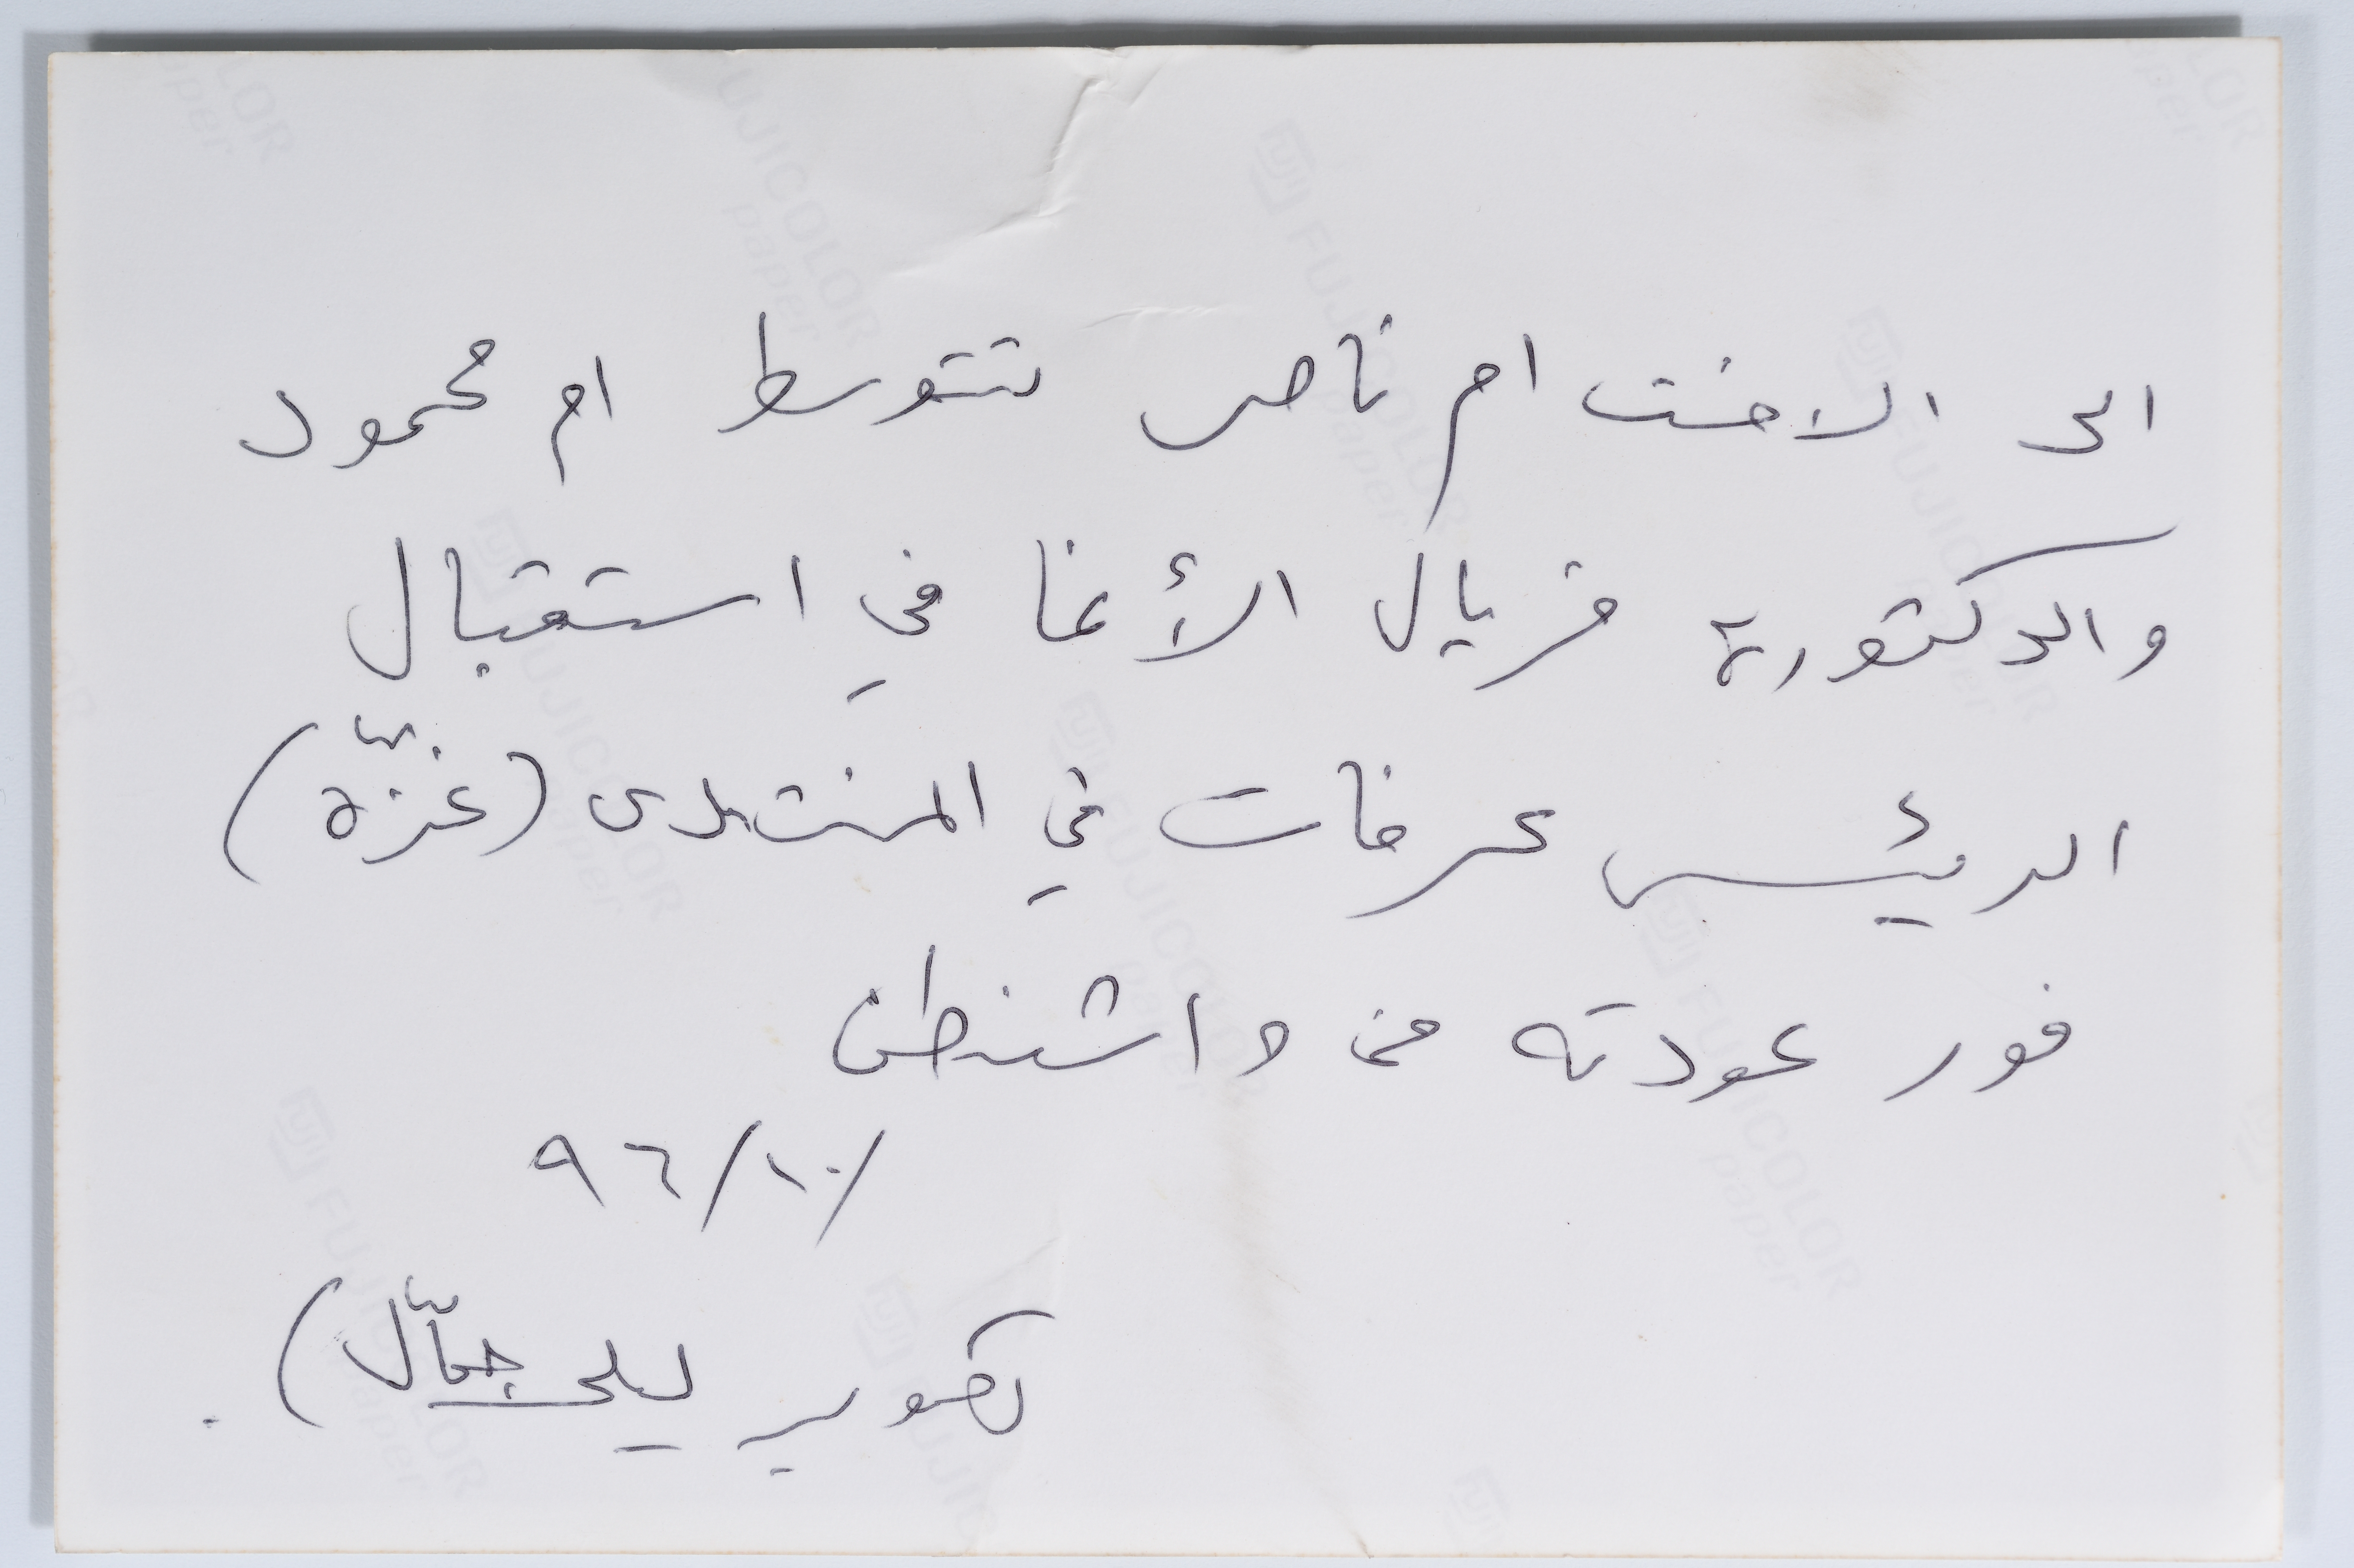 الى الاخت ام ناصر تتوسط ام محمود
والدكتورة فريال الأغا في استقبال
الرئيس عرفات في المنتدى (غزّة)
فور عودته من واشنطن
/١٠/٩٦
تصوير ليلى جمّال)